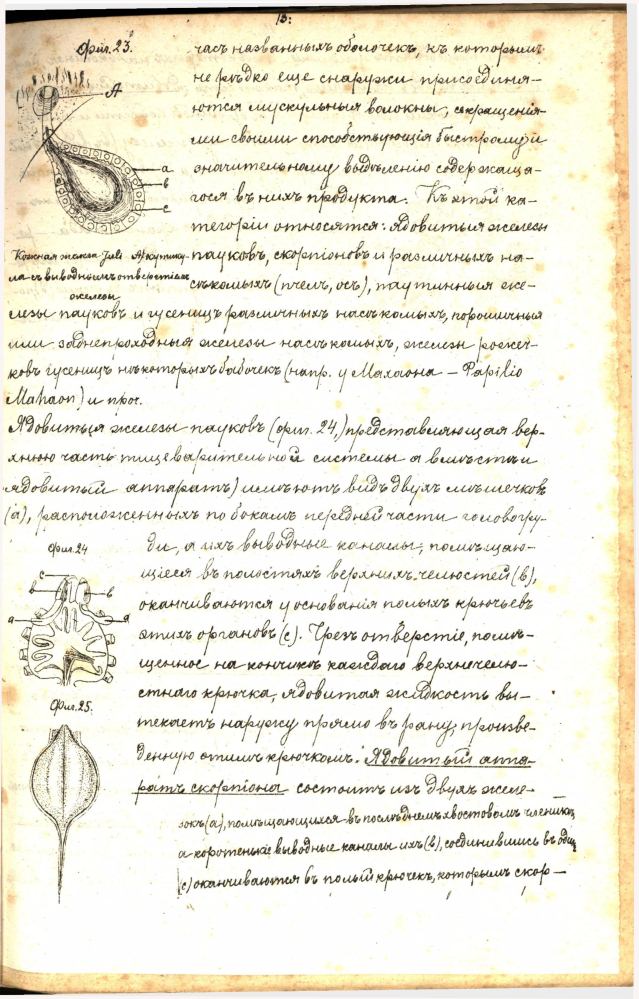 13:
Фиг. 23.
A
a
b
c
Кожная железа Juli A
ла съ выводнымъ отверстіемъ
железы
часъ названныхъ оболочекъ, къ которымъ
не рѣдко еще снаружи присоединя-
ются мускульныя волокны, сокращенія-
ми своими способствующія быстрому и
значительному выдѣленію содержаща-
гося въ нихъ продукта. Къ этой ка-
тегоріи относятся: ядовитыя железы
пауковъ, скорпіоновъ и различныхъ на-
сѣкомыхъ (пчелъ, осъ), паутинныя же-
лезы пауковъ и гусеницъ различныхъ насѣкомыхъ, порошичныя
или заднепроходныя железы насѣкомыхъ, железы рожеч-
ковъ гусеницъ нѣкоторыхъ бабочекъ (напр. у Махаона – Papilio
Mahaon) и проч.
Ядовитыя железы пауковъ (фиг. 24,) представляющая вер-
хнюю часть пищеварительной системы а вмѣстѣ и
ядовитый аппаратъ) имѣютъ видъ двухъ мѣшечковъ
(а), расположенныхъ по бокамъ передней части головогру-
Фиг. 24
c
b
b
a
a
ди, а ихъ выводные каналы, помѣщаю-
щіеся въ полостяхъ верхнихъ челюстей (в),
оканчиваются у основанія полыхъ крючьевъ
этихъ органовъ (с). Чрезъ отверстіе, помѣ-
щенное на кончикѣ каждаго верхнечелю-
стнаго крючка, ядовитая жидкость вы-
Фиг. 25.
текаетъ наружу прямо въ рану, произве-
денную этимъ крючкомъ. Ядовитый аппа-
ратъ скорпіона состоитъ изъ двухъ желе-
зокъ (а), помѣщающихся въ послѣднемъ хвостовомъ членикѣ,
а коротенькіе выводные каналы ихъ (в), соединившись въ общій
(с) оканчиваются въ полый крючекъ, которымъ скор-